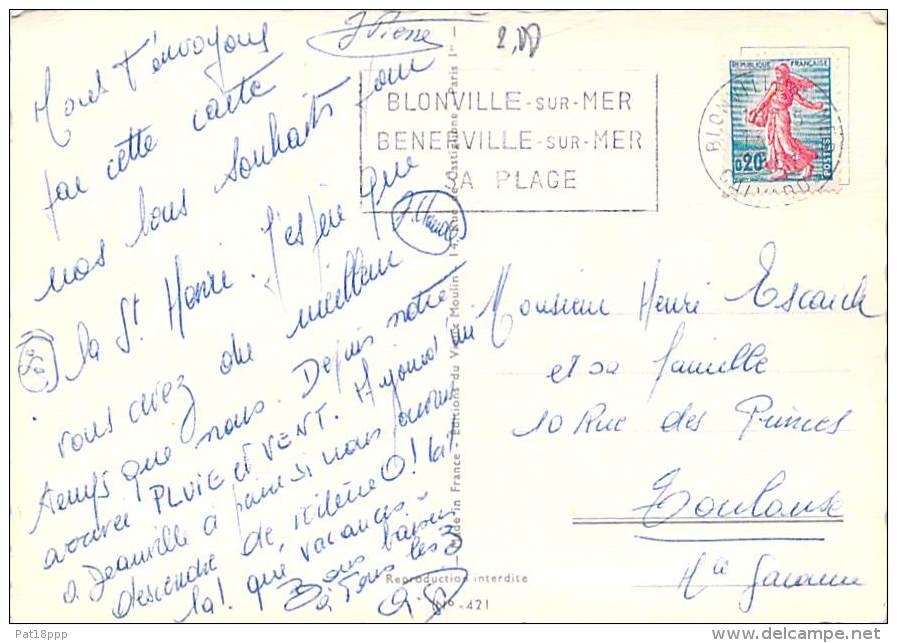 Nous t'envoyons
par cette carte
nos bons souhaits pour
la St Henri. J'espère que
vous avez du meilleur
temps que nous. Depuis notre
arrivée PLUIE et VENT. Aujourd'hui
à Deauville à peine si nous pouvons
descendre de voiture! la!
la! que vacances.
Bons baisers
à tous les 3
2,00
BLONVILLE-SUR-MER
BENERVILLE-SUR-MER
LA PLAGE
REPUBLIQUE FRANÇAISE
0,20
POSTES
BLONVILLE
CALVADOS
Made in France - Editions du Vieux Moulin - 14, Rue de Castiglione, Paris 1er
Monsieur Henri Escaich
et sa famille
10 Rue des Princes
Toulouse
Hte Garonne
Reproduction interdite
No - 421
Pat18ppp
www.delcampe.net